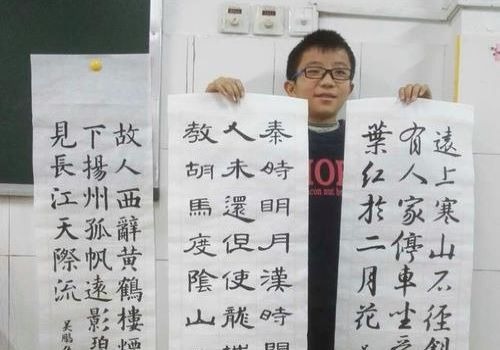 故人西辭黄鶴樓煙
下揚州孤帆遠影碧
見長江天際流
吴鵬
秦時明月漢時關
人未還但使龍城
教胡馬度陰山
遠上寒山石徑斜
有人家停車坐愛
葉紅於二月花